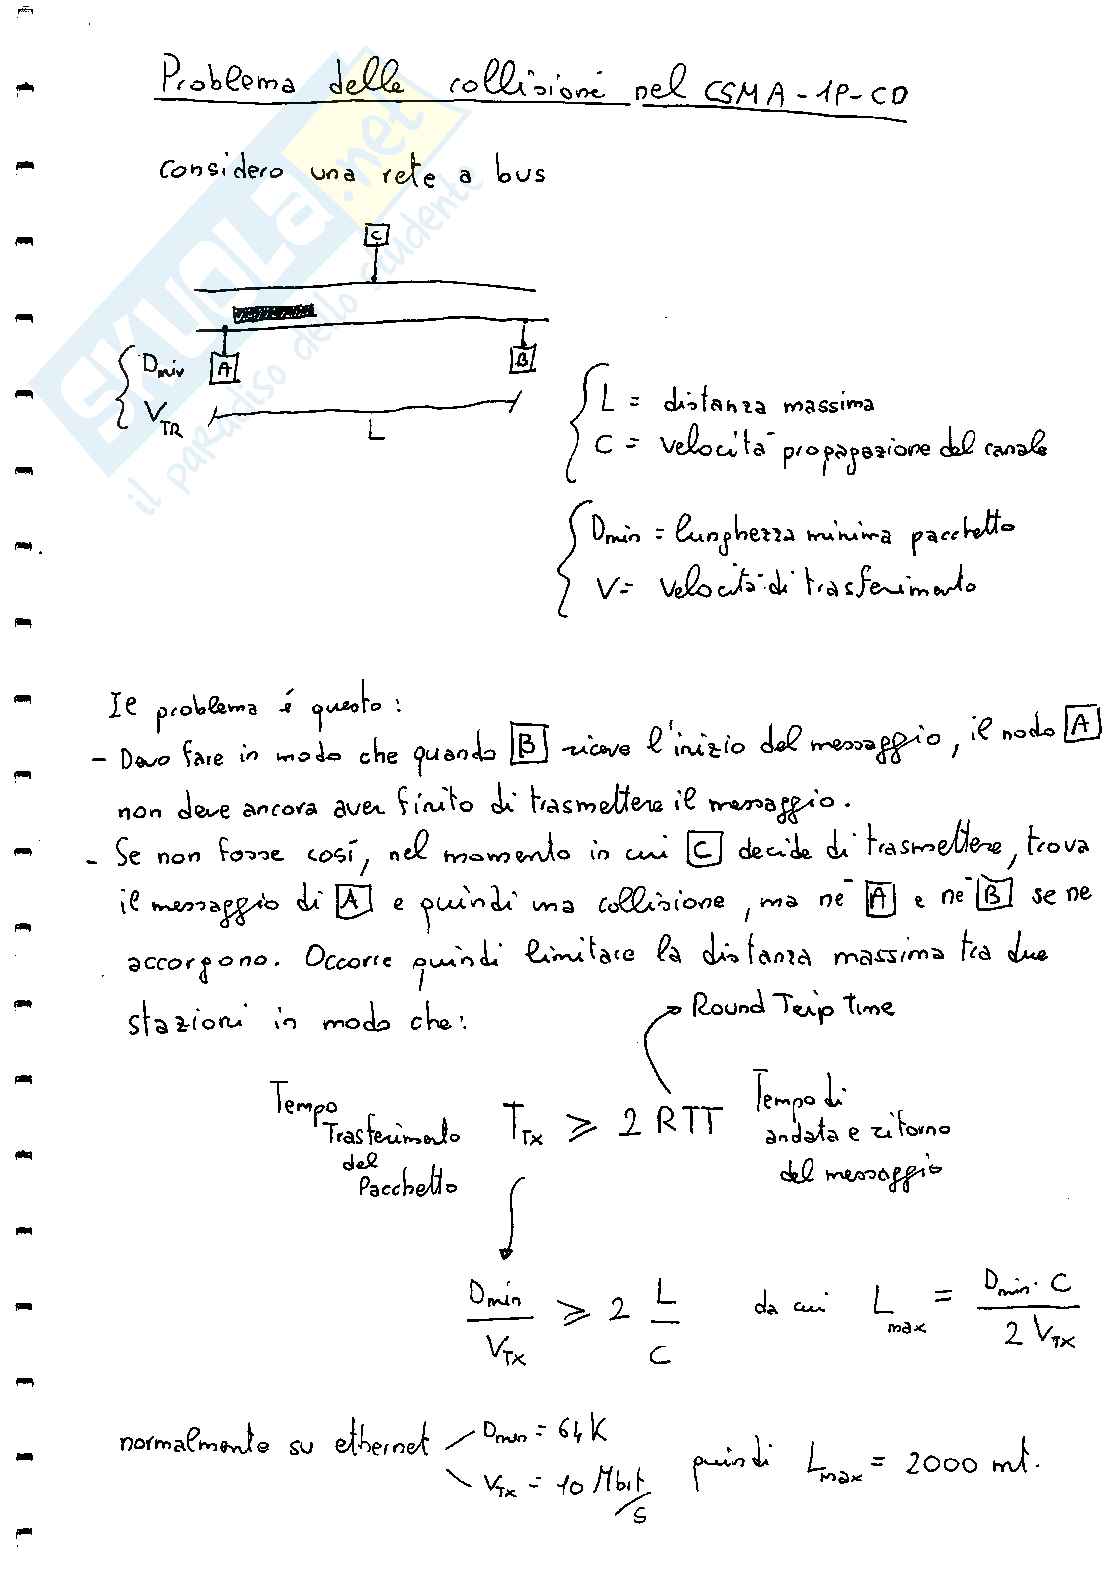 Problema delle collisioni nel CSMA-1P-CD
SKUOLA.net
il paradiso dello studente
Considero una rete a bus
C
A
B
Dmin
VTR
L
L = distanza massima
C = velocità propagazione del canale
Dmin = lunghezza minima pacchetto
V = velocità di trasferimento
Il problema é questo:
- Devo fare in modo che quando B riceve l'inizio del messaggio, il nodo A
non deve ancora aver finito di trasmettere il messaggio.
- Se non fosse cosí, nel momento in cui C decide di trasmettere, trova
il messaggio di A e quindi una collisione, ma né A e né B se ne
accorgono. Occorre quindi limitare la distanza massima tra due
stazioni in modo che:
Round Trip Time
Tempo Trasferimento del Pacchetto
TTX ≥ 2 RTT
Tempo di andata e ritorno del messaggio
Dmin / VTX ≥ 2 L / C da cui Lmax = Dmin · C / 2 VTX
normalmente su ethernet Dmin = 64K
VTX = 10 Mbit/s
quindi Lmax = 2000 mt.